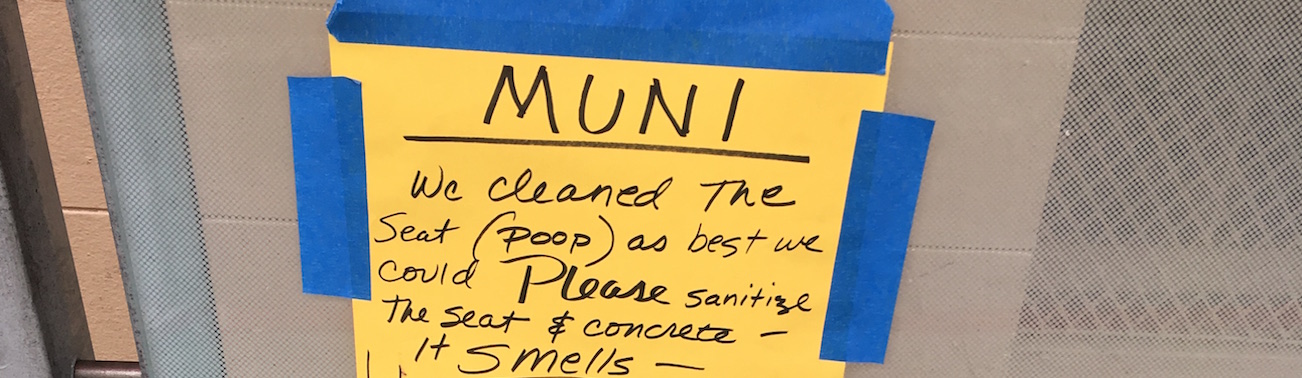 MUNI
We cleaned The
Seat (poop) as best we
could Please sanitize
The seat & concrete –
It smells –